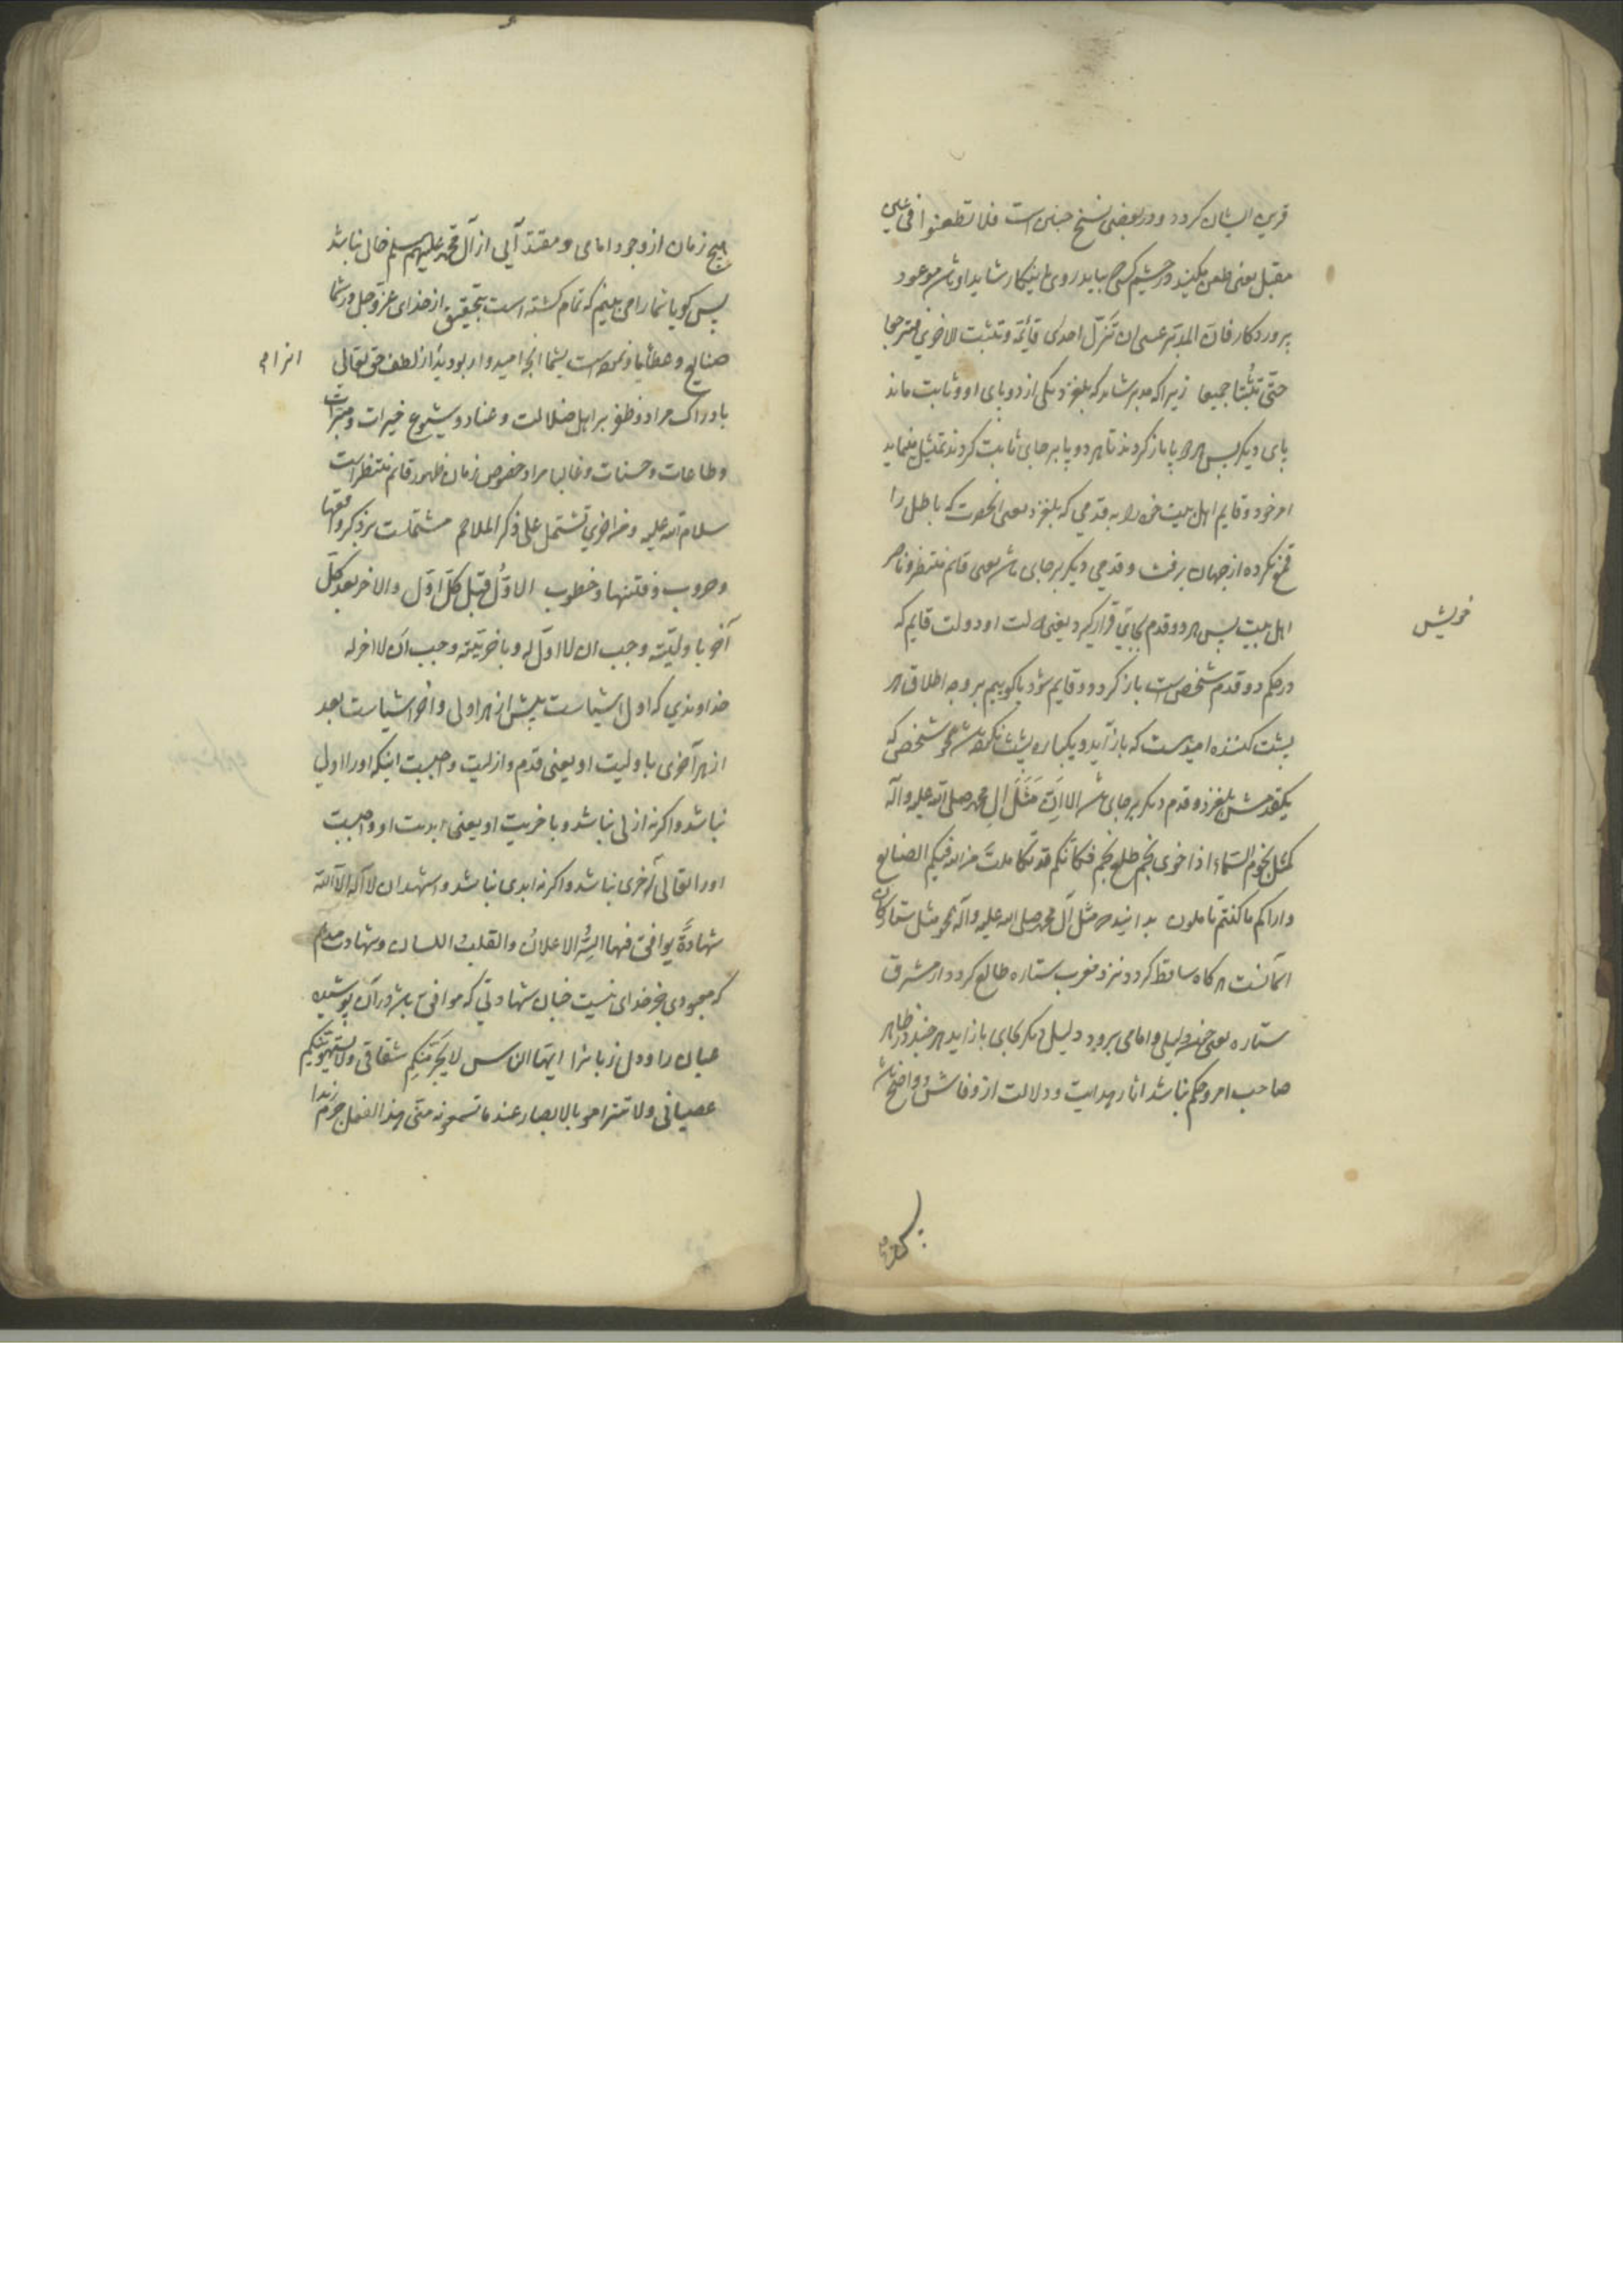 قرین ایشان کردد و در بعضی نسخ چنین است فلا تطعنوا فی عین
مقبل یعنی طعن مکنید در چشم کسی که بیاید روی باینکار شاید او باشد موعود
پروردکار فان المدبر عسی ان تزل احدی قائمتیه و تثبت الاخری فترجعا
حتی تثبتا جمیعا زیرا که مدبر شاید که بلغزد یکی از دو پای او و ثابت ماند
پای دیکر پس هر دو پا باز کردند تا هر دو پا بر جای ثابت کردند تمثیل مینماید
امر خود و قایم اهل بیت خود را به قدمی که بلغزد یعنی انحضرت که باطل را
قمع نکرده از جهان برفت و قدمی دیکر بر جای باشد یعنی قائم منتظر و ناصر
اهل بیت پس هر دو قدم بجای قرار کیرد یعنی دولت او و دولت قایم که
در حکم دو قدم شخص است باز کردد و قایم شود یا کوییم بر وجه اطلاق هر
پشت کننده امید است که باز آید و یکباره پشت نکرده باشد همچو شخصی که
یکقدمش بلغزد و قدم دیکر بر جای باشد الا ان مثل ال محمد صلی الله علیه و آله
کمثل نجوم السماء اذا خوی نجم طلع نجم فکانکم قد تکاملت من الله فیکم الصنایع
و اراکم ما کنتم تاملون بدانید که مثل آل محمد صلی الله علیه و آله همچو مثل ستارکان
اسمانست هر کاه ساقط کردد نزد مغرب ستاره طالع کردد از مشرق
ستاره یعنی چون دلیلی و امامی برود دلیلی دیکر بجای باز اید هر چند در ظاهر
صاحب امر و حکم نباشد اثار هدایت و دلالت از و فاش و واضح باشد
خویش
هیچ زمان از وجود امامی و مقتدایی از آل محمد علیهم السلم خالی نباشد
پس کویا شما را می بینم که تمام کشته است بتحقیق از خدای عز و جل در شما
صنایع و عطایا و نموده است بشما انچه امیدوار بودید از لطف حق تعالی
بادراک مراد و ظفر بر اهل ضلالت و عناد و شیوع خیرات و مبرات
و طاعات و حسنات و غالبا مراد خصوص زمان ظهور قائم منتظر است
سلام الله علیه و من اخری تشتمل علی ذکر الملاحم مشتملست بر ذکر وقعها
و حروب و فتنها و خطوب الاول قبل کل اول و الاخر بعد کل
آخر باولیته وجب ان لا اول له و باخریته وجب ان لا اخر له
خداوندی که اول اشیاست پیش از هر اولی و اخر اشیاست بعد
از هر آخری باولیت او یعنی قدم و ازلیت واجبست اینکه او را اولی
نباشد و اکر نه ازلی نباشد و باخریت او یعنی ابدیت او واجبست
او را تعالی آخری نباشد و اکر نه ابدی نباشد و اشهد ان لا اله الا الله
شهادة یوافق فیها السر الاعلان و القلب اللسان و شهادت میدهم
که معبودی بجز خدای نیست چنان شهادتی که موافق باشد در آن پوشیده
عیان را و دل زبانرا ایها الناس لا یجرمنکم شقاقی و لا یستهوینکم
عصیانی و لا تتراموا بالابصار عند ما تسمعونه منی